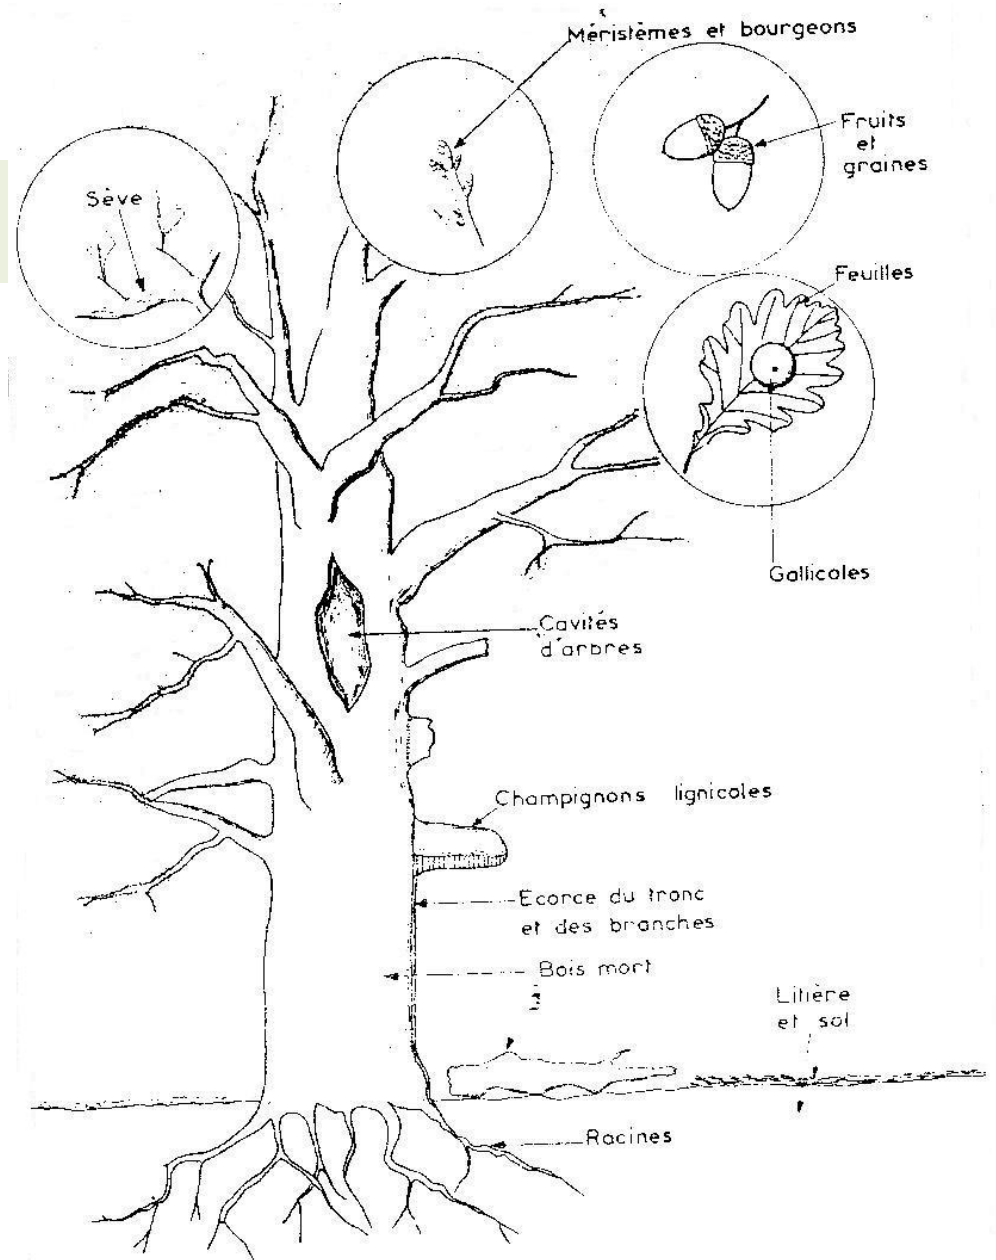 Méristèmes et bourgeons
Fruits
et
graines
Sève
Feuilles
Gallicoles
Cavités
d'arbres
Champignons lignicoles
Ecorce du tronc
et des branches
Bois mort
Litière
et sol
Racines